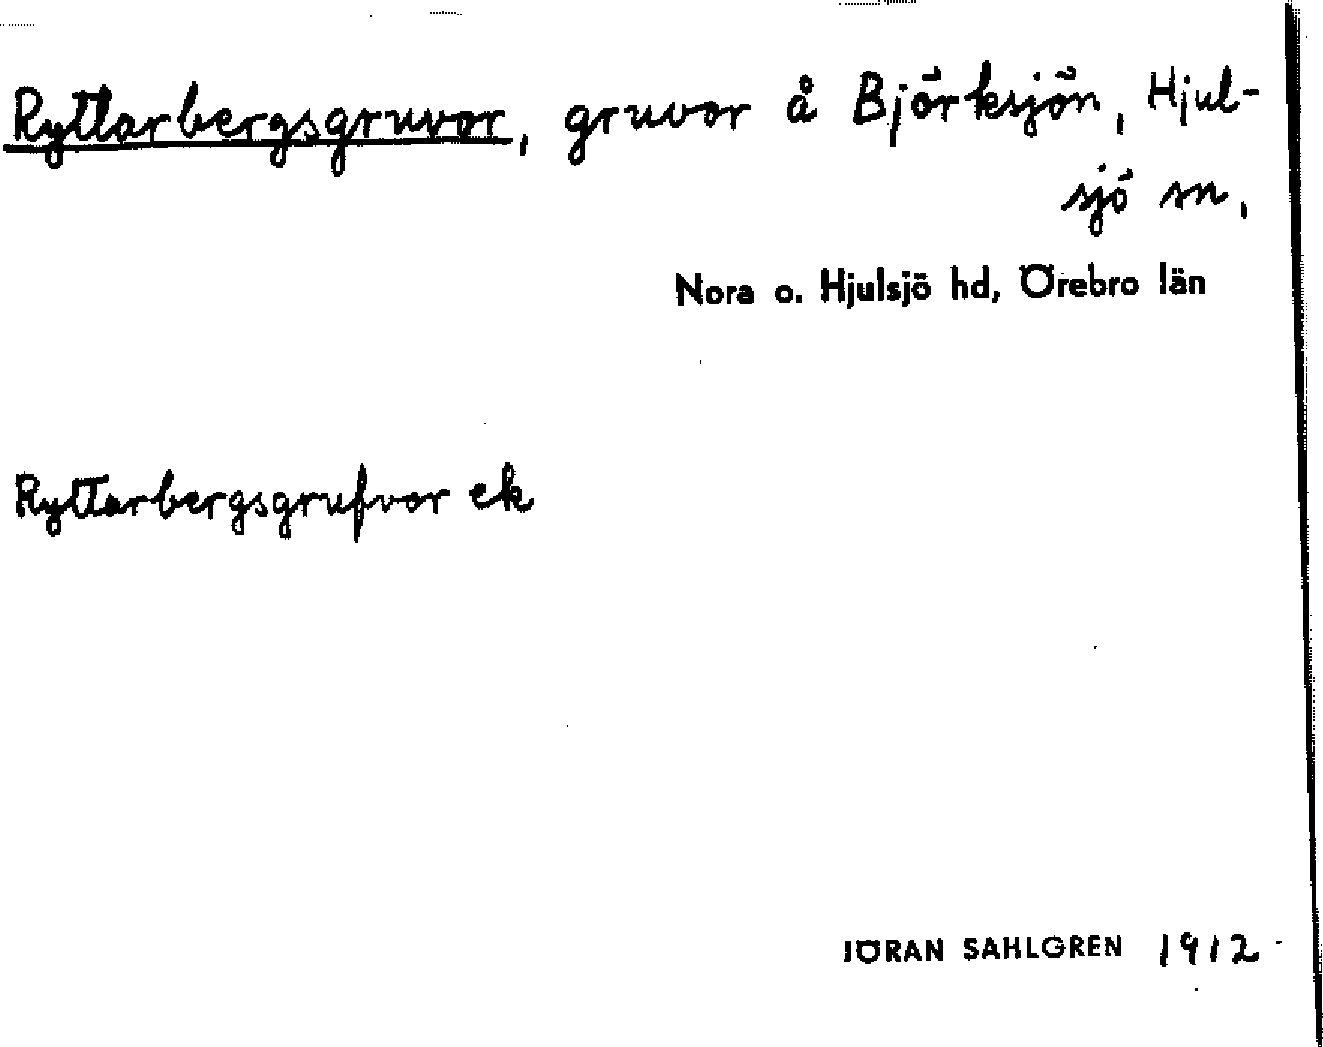 Ryttarbergsgruvor, gruvor å Björksjön, Hjul-
sjö sn,
Nora o. Hjulsjö hd, Örebro län
Ryttarbergsgrufvor ek
JÖRAN SAHLGREN 1912